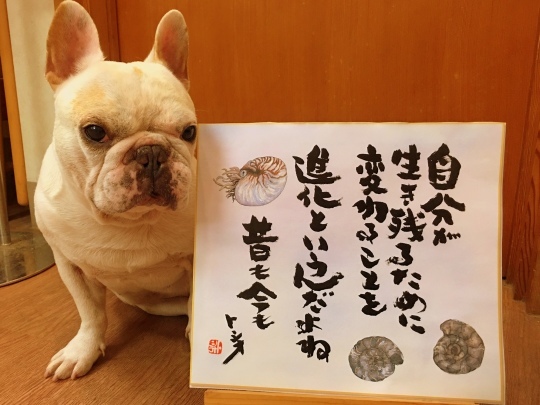 自分が
生き残るために
変わることを
進化というんだよね
昔も今も
トシオ